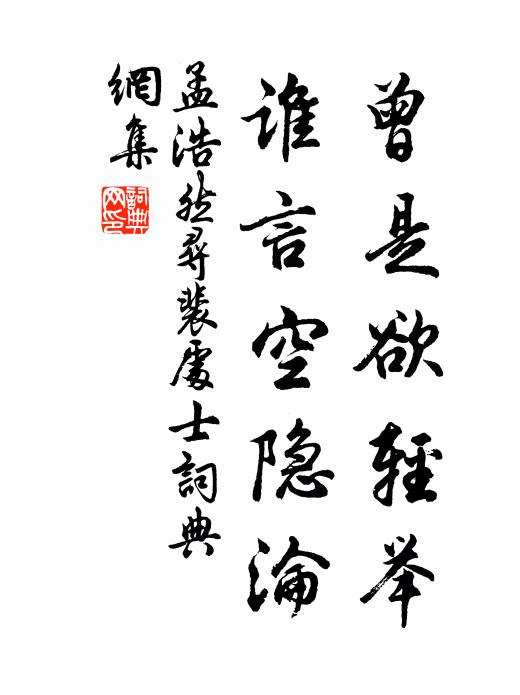 曾是欲輕举
谁言空隐淪
孟浩然尋裴處士詞典
網集
詞典
网印